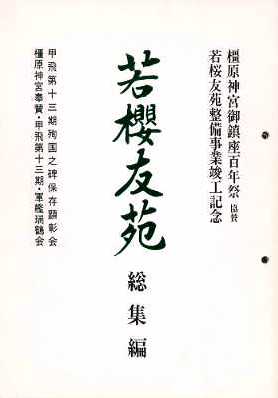 橿原神宮御鎮座百年祭 協賛
若桜友苑整備事業竣工記念
若櫻友苑
総集編
甲飛第十三期殉国之碑保存顕彰会
橿原神宮奉賛・甲飛第十三期・軍艦瑞鶴会